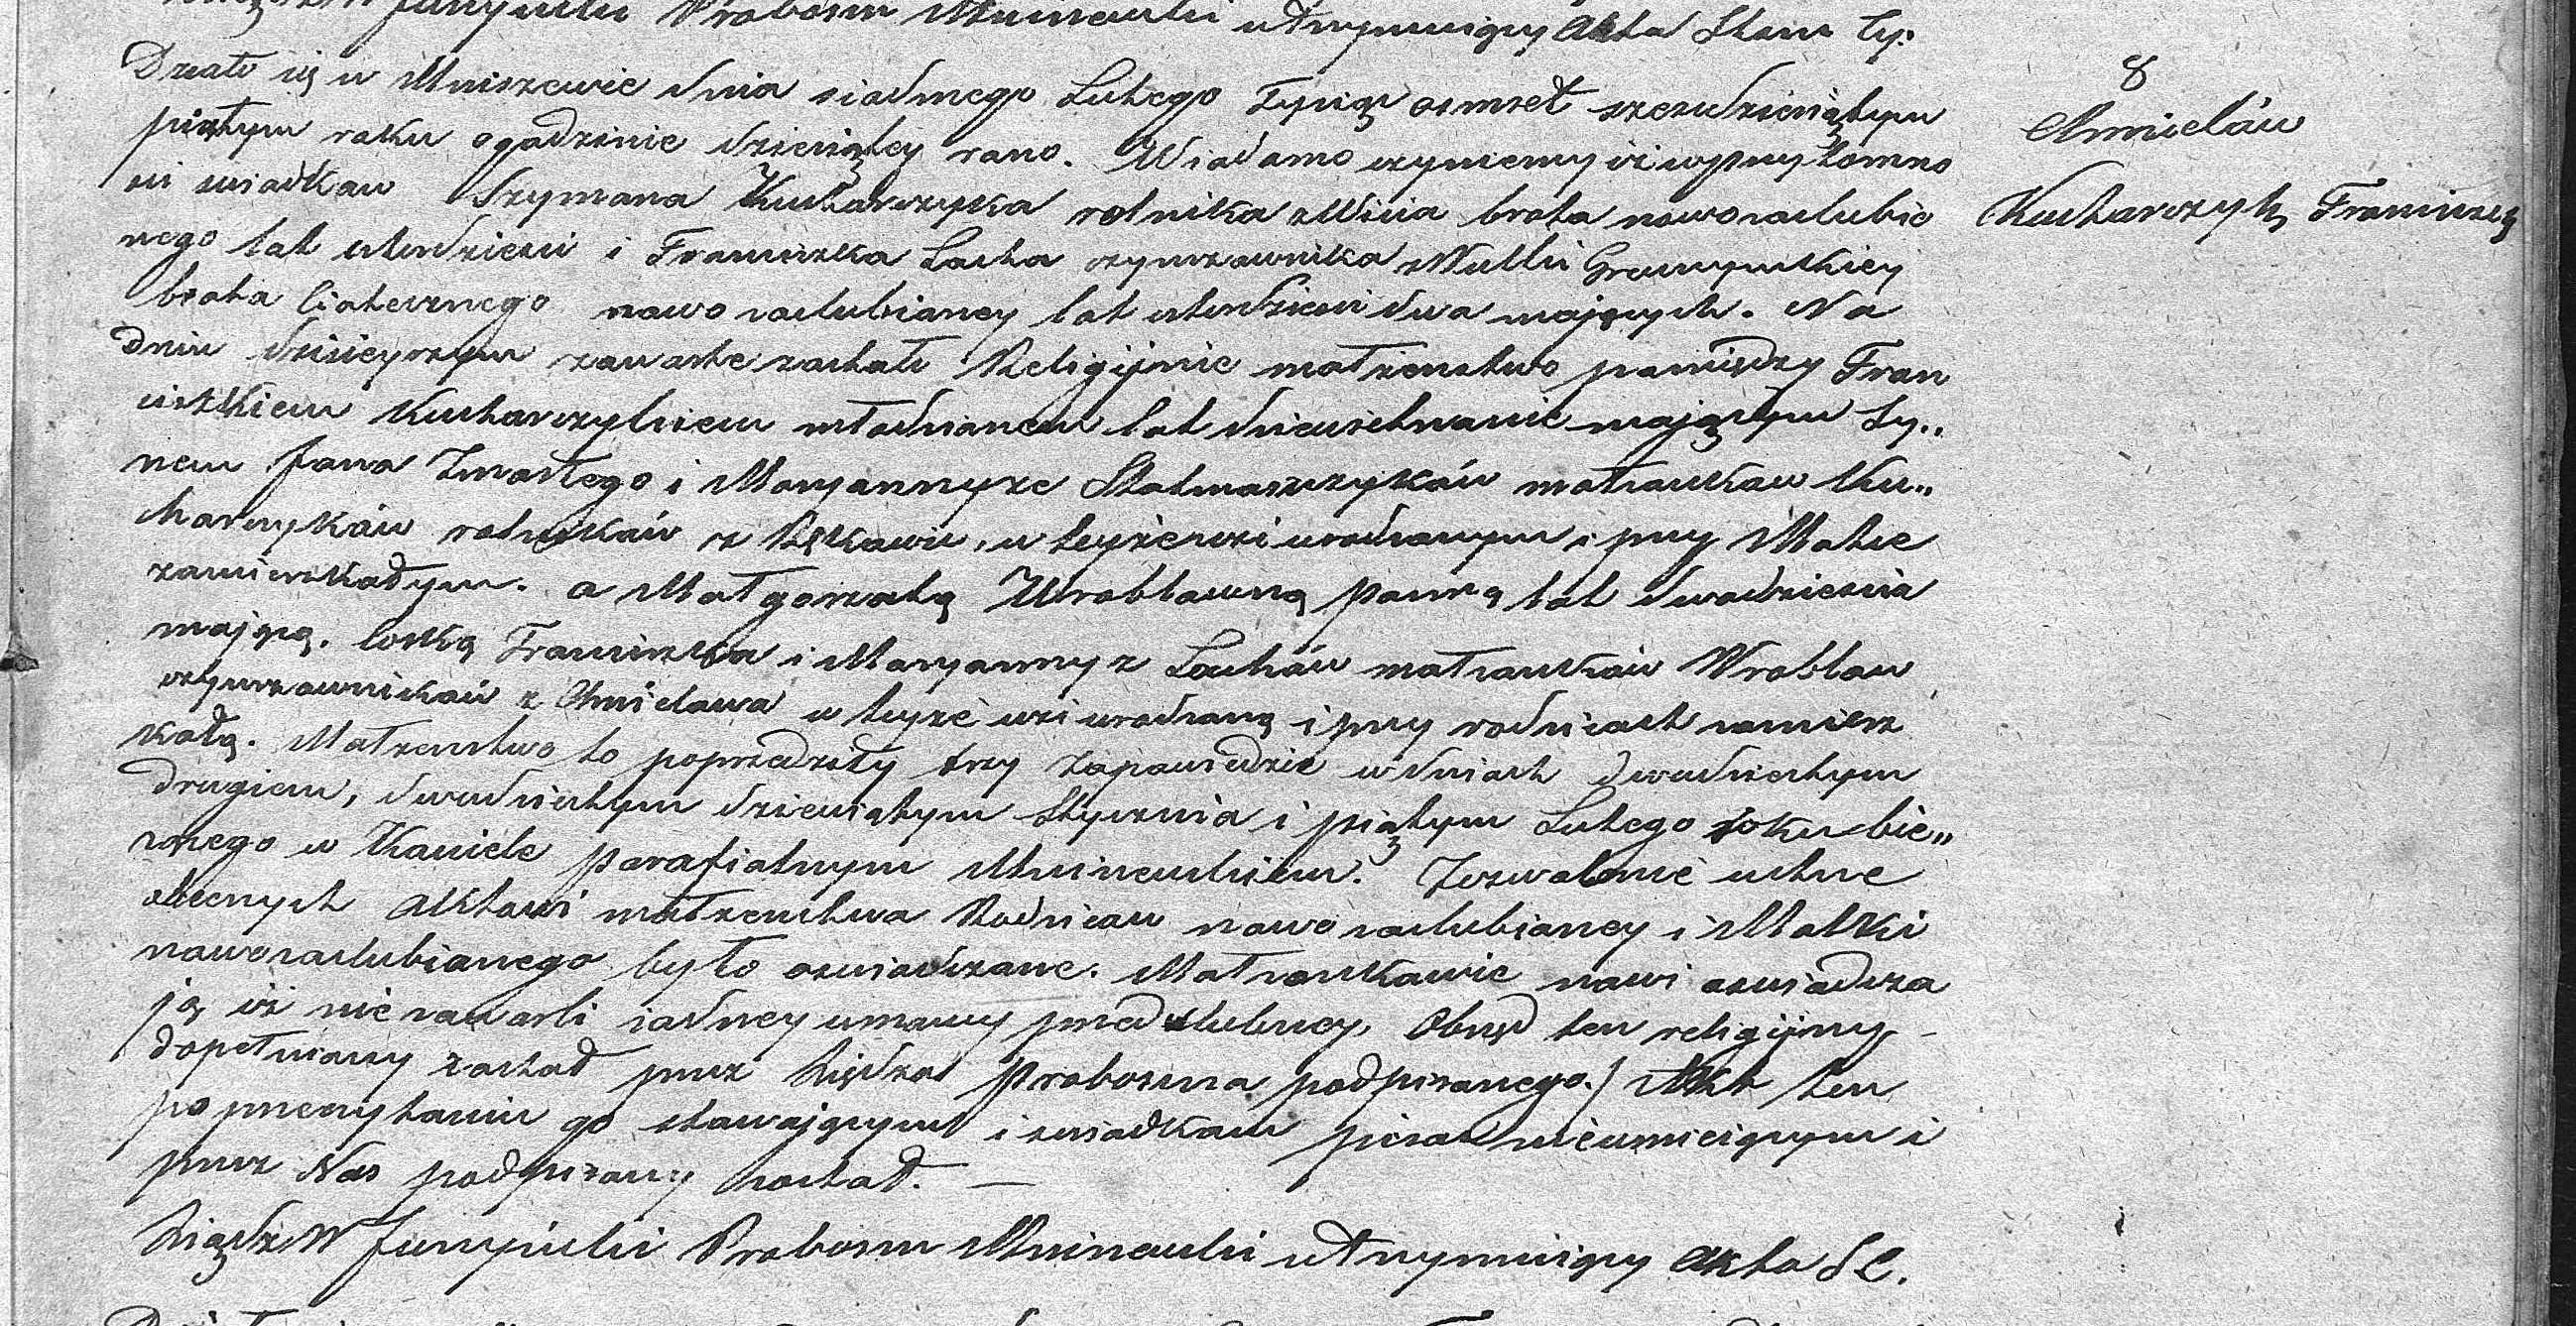 Proboszcz Mniszewski utrzymuiący Akta Stanu Cy:
8
Chmielów
Kucharczyk Franciszek
Działo się w Mniszewie dnia siódmego Lutego Tysiąc osmset szesćdziesiątym
piątym roku o godzinie dziewiątey rano. Wiadomo czyniemy iż w przytomno
sci swiadków Szymona Kucharczyka rolnika z Wicia brata nowozaslubio
nego lat czterdziesci i Franciszka Lacha czynszownika z Wulki Gruszczyńskiey
brata Ciotecznego nowo zaslubioney lat czterdziesci dwa maiących. Na
dniu dzisieyszym zawarte zostało Religijnie małżenstwo pomiędzy Fran
ciszkiem Kucharczykiem młodzianem lat dziewietnascie mającym Sy„
nem Jana Zmarłego i Maryanny ze Stelmaszczyków małżonków Ku„
charczyków rolników z Rękowic, w teyże wsi urodzonym i przy Matce
zamieszkałym. a Małgorzatą Wroblowną Panną lat dwadziescia
mającą. Corką Franciszka i Maryanny z Lachów małżonków Wroblow
czynszowników z Chmielowa w teyże wsi urodzoną i przy rodzicach zamiesz
kałą. Małżenstwo to poprzedziły trzy Zapowiedzie w dniach dwudziestym
drugiem, dwudziestym dziewiątym Stycznia i piątym Lutego roku bie„
rzącego w Kosciele parafialnym Mniszewskiem. Zezwolenie ustne
obecnych Aktowi małżenstwa Rodzicow nowo zaslubioney i Matki
nowozaslubionego było oswiadczone. Małżonkowie nowi oswiadcza
ją iż nie zawarli żadney umowy przedslubney. Obrzęd ten religijny
dopełniony został przez Księdza Proboszcza podpisanego. Akt ten
po przeczytaniu go stawaiącym i swiadkom pisać nieumieiącym i
przez Nas podpisany został. —
Ksiądz W Proboszcz Mniszewski utrzymuiący Akta S C.